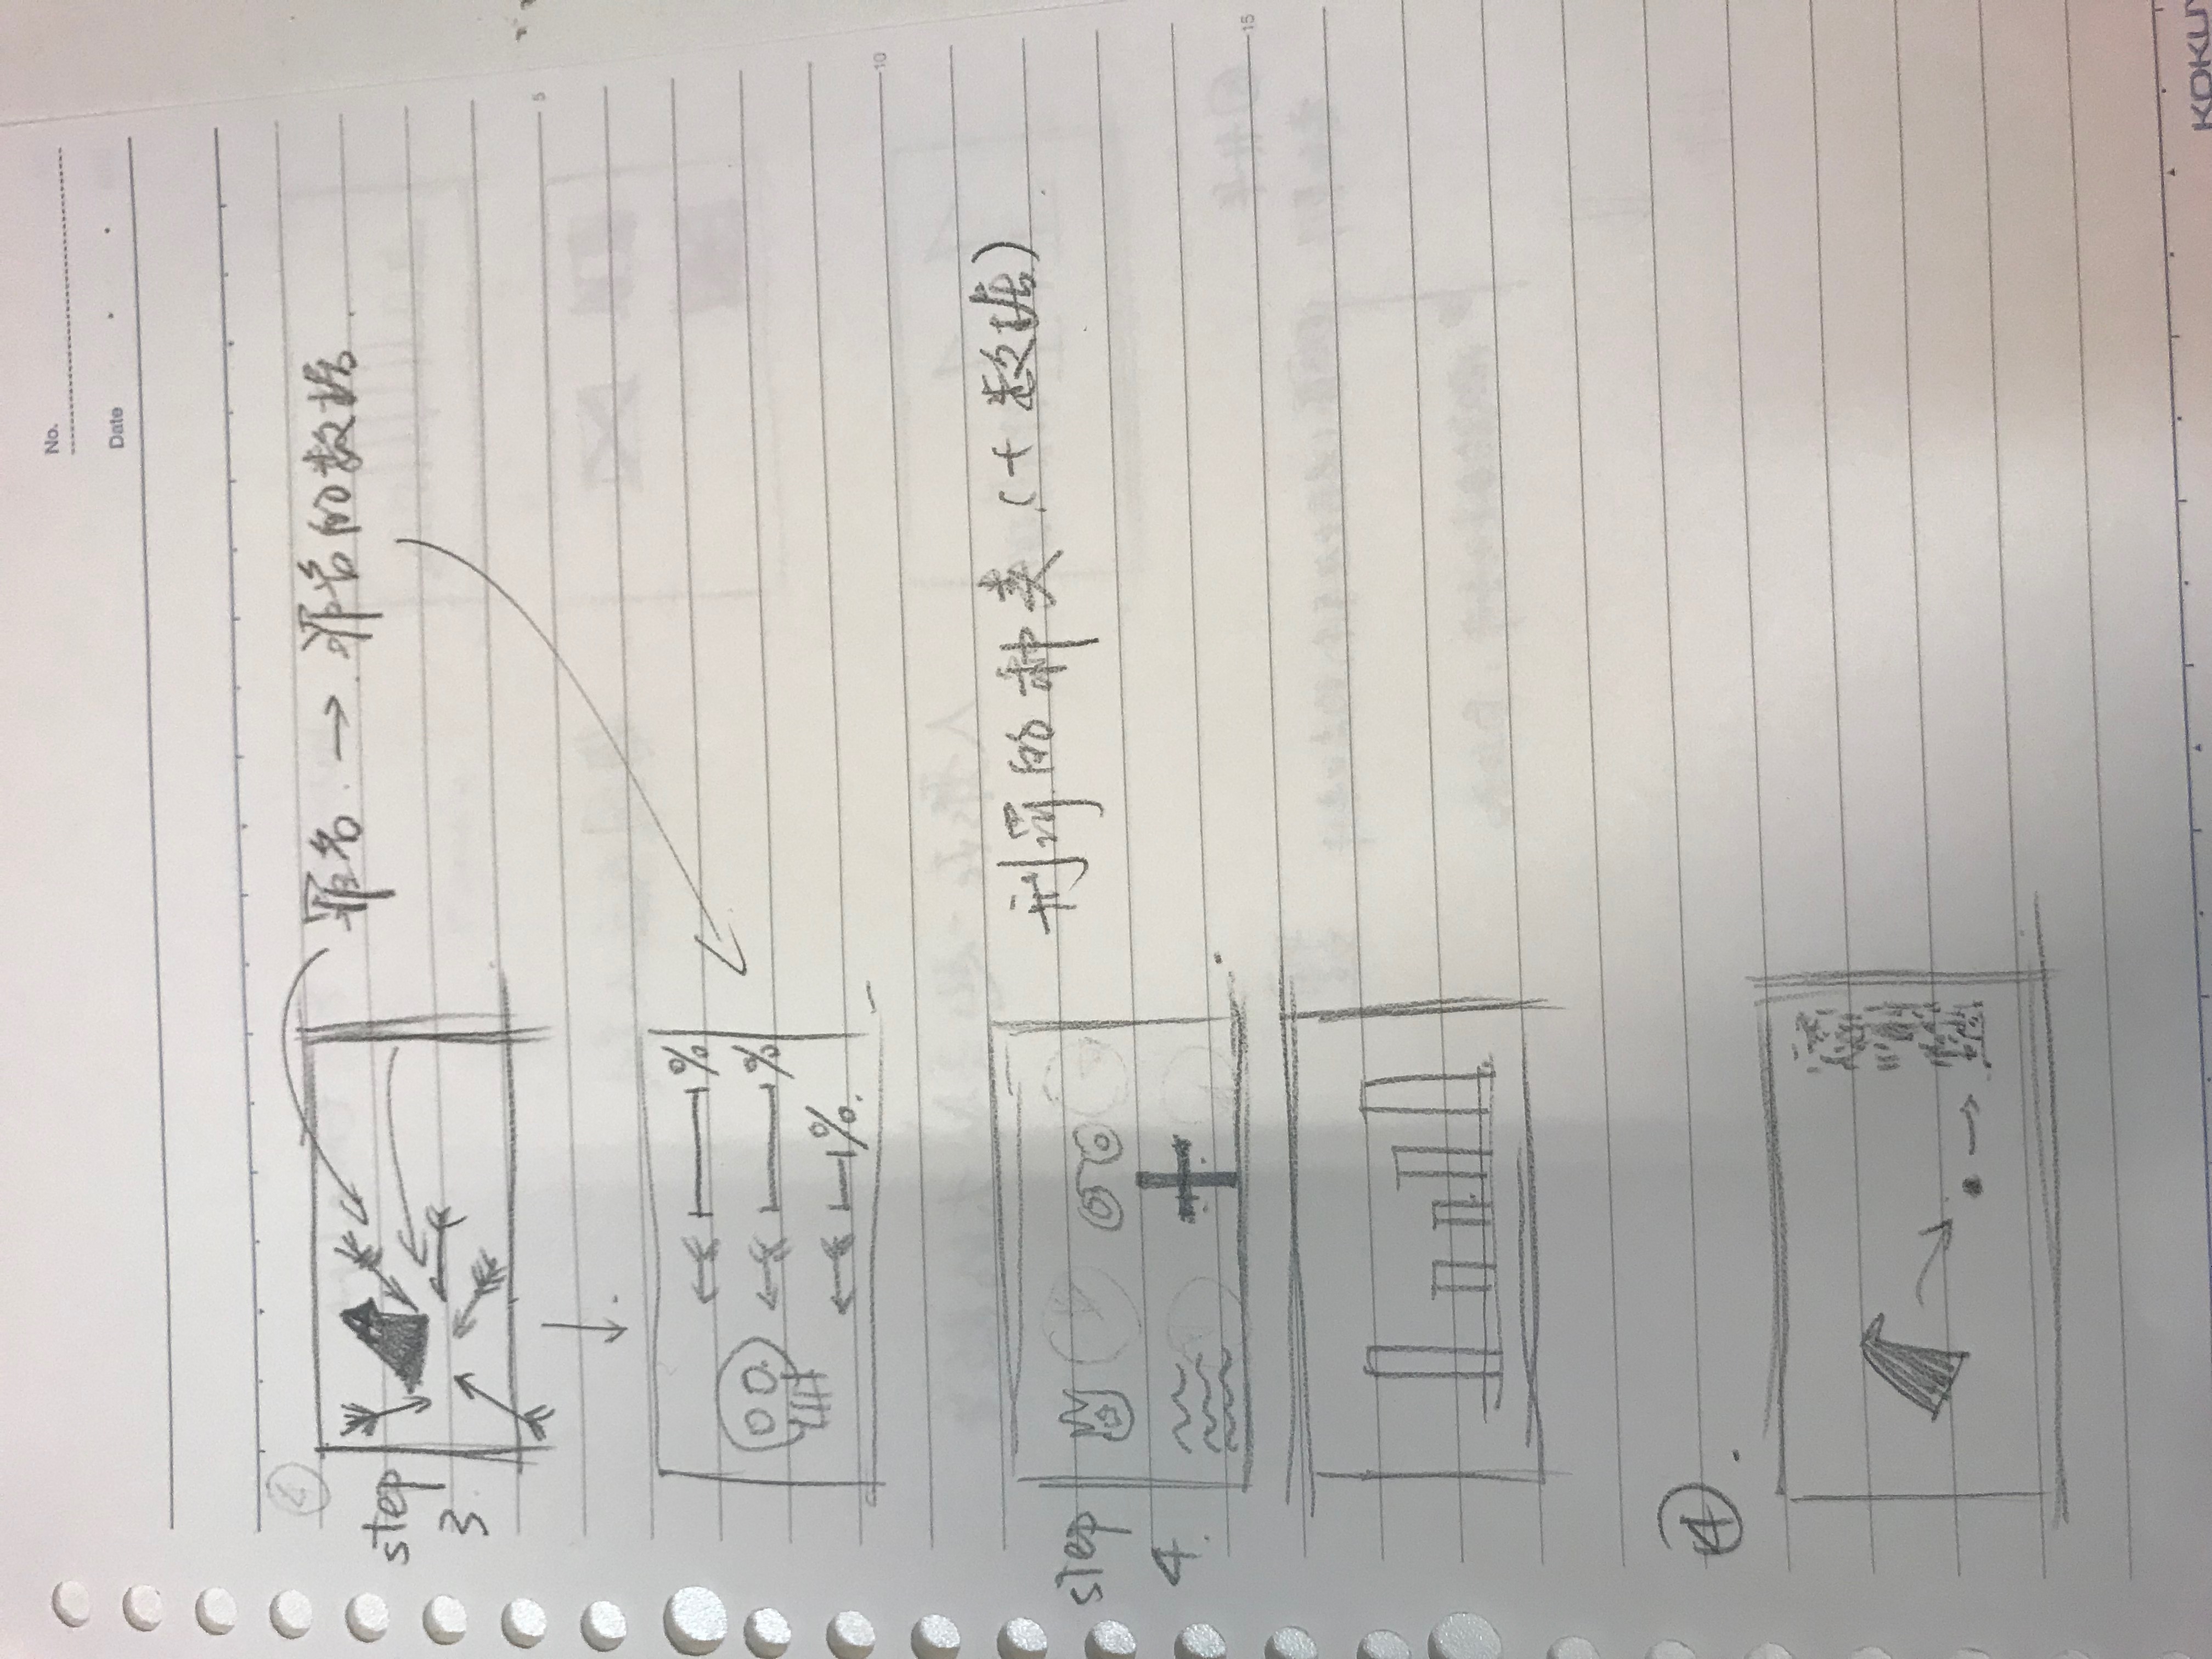 No.
Date
step 3.
罪名 → 罪名的数据.
5
%
%
%.
10
step 4.
刑罚的种类 (+ 数据)
15
④.